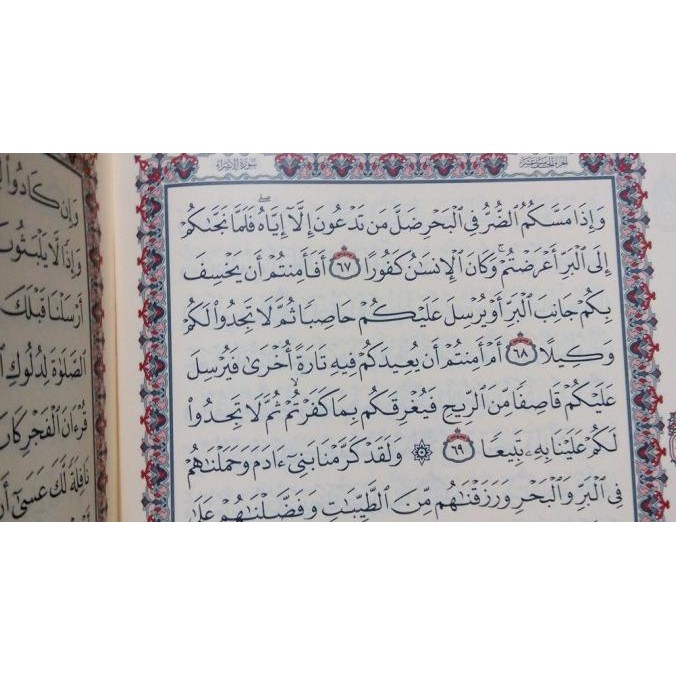 سُورَةُ الإِسْرَاء
الجُزْءُ الخَامِسَ عَشَرَ
وَإِذَا مَسَّكُمُ ٱلضُّرُّ فِي ٱلْبَحْرِ ضَلَّ مَن تَدْعُونَ إِلَّآ إِيَّاهُۖ فَلَمَّا نَجَّىٰكُمْ
إِلَى ٱلْبَرِّ أَعْرَضْتُمْۚ وَكَانَ ٱلْإِنسَٰنُ كَفُورًا ٦٧ أَفَأَمِنتُمْ أَن يَخْسِفَ
بِكُمْ جَانِبَ ٱلْبَرِّ أَوْ يُرْسِلَ عَلَيْكُمْ حَاصِبًا ثُمَّ لَا تَجِدُوا۟ لَكُمْ
وَكِيلًا ٦٨ أَمْ أَمِنتُمْ أَن يُعِيدَكُمْ فِيهِ تَارَةً أُخْرَىٰ فَيُرْسِلَ
عَلَيْكُمْ قَاصِفًا مِّنَ ٱلرِّيحِ فَيُغْرِقَكُم بِمَا كَفَرْتُمْۙ ثُمَّ لَا تَجِدُوا۟
لَكُمْ عَلَيْنَا بِهِۦ تَبِيعًا ٦٩ ۞ وَلَقَدْ كَرَّمْنَا بَنِيٓ ءَادَمَ وَحَمَلْنَٰهُمْ
فِي ٱلْبَرِّ وَٱلْبَحْرِ وَرَزَقْنَٰهُم مِّنَ ٱلطَّيِّبَٰتِ وَفَضَّلْنَٰهُمْ عَلَىٰ
وَإِن كَادُوا۟
وَإِذًا لَّا يَلْبَثُونَ
أَرْسَلْنَا قَبْلَكَ
ٱلصَّلَوٰةَ لِدُلُوكِ
قُرْءَانَ ٱلْفَجْرِ كَانَ
نَافِلَةً لَّكَ عَسَىٰٓ أَن